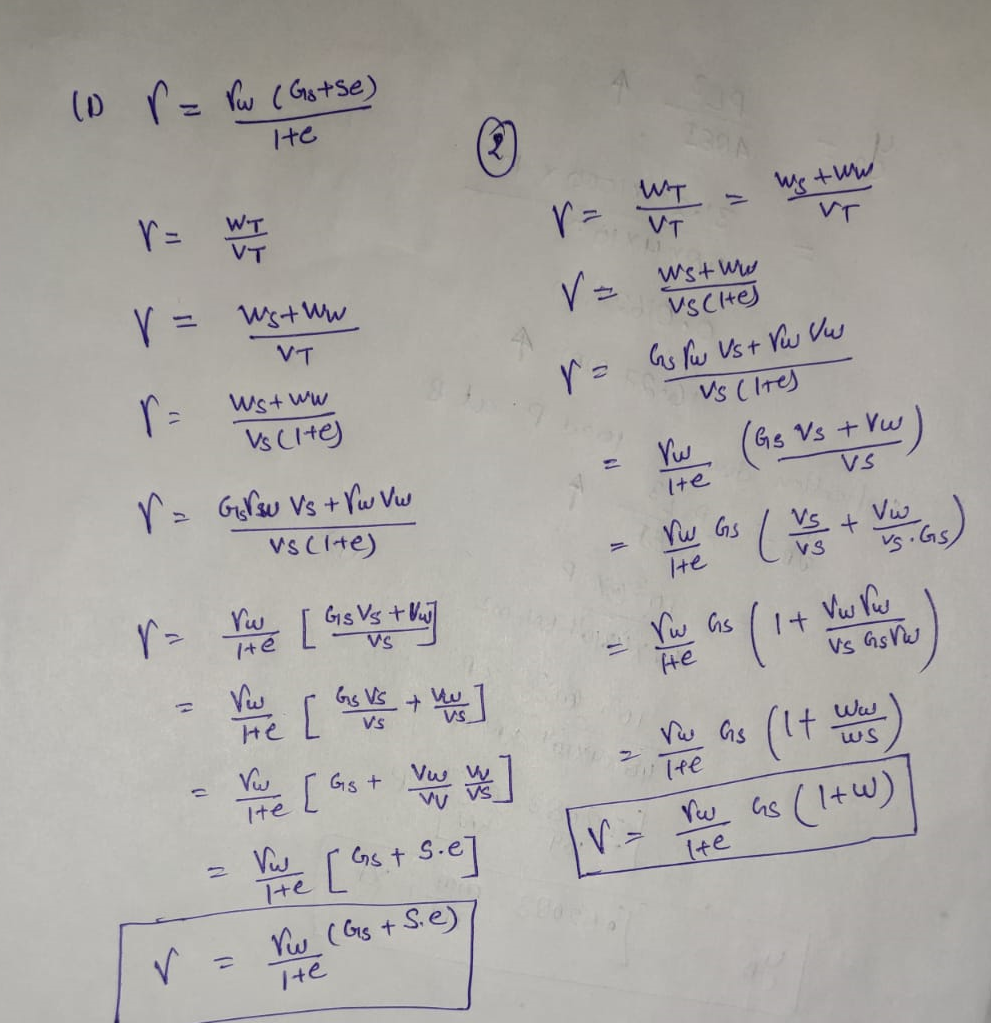 (1) r = rw (Gs+Se) / 1+e
r = WT / VT
r = Ws+Ww / VT
r = Ws+Ww / Vs(1+e)
r = Gsrw Vs + rw Vw / Vs(1+e)
r = rw / 1+e [ Gs Vs + Vw / Vs ]
= rw / 1+e [ Gs Vs / Vs + Vw / Vs ]
= rw / 1+e [ Gs + Vw / Vv Vv / Vs ]
= rw / 1+e [ Gs + S.e ]
r = rw / 1+e (Gs + S.e)
(2)
r = WT / VT = Ws + Ww / VT
r = Ws + Ww / Vs(1+e)
r = Gs rw Vs + rw Vw / Vs (1+e)
= rw / 1+e ( Gs Vs + Vw / Vs )
= rw / 1+e Gs ( Vs / Vs + Vw / Vs.Gs )
= rw / 1+e Gs ( 1 + Vw rw / Vs Gs rw )
= rw / 1+e Gs ( 1 + Ww / Ws )
r = rw / 1+e Gs ( 1+w )